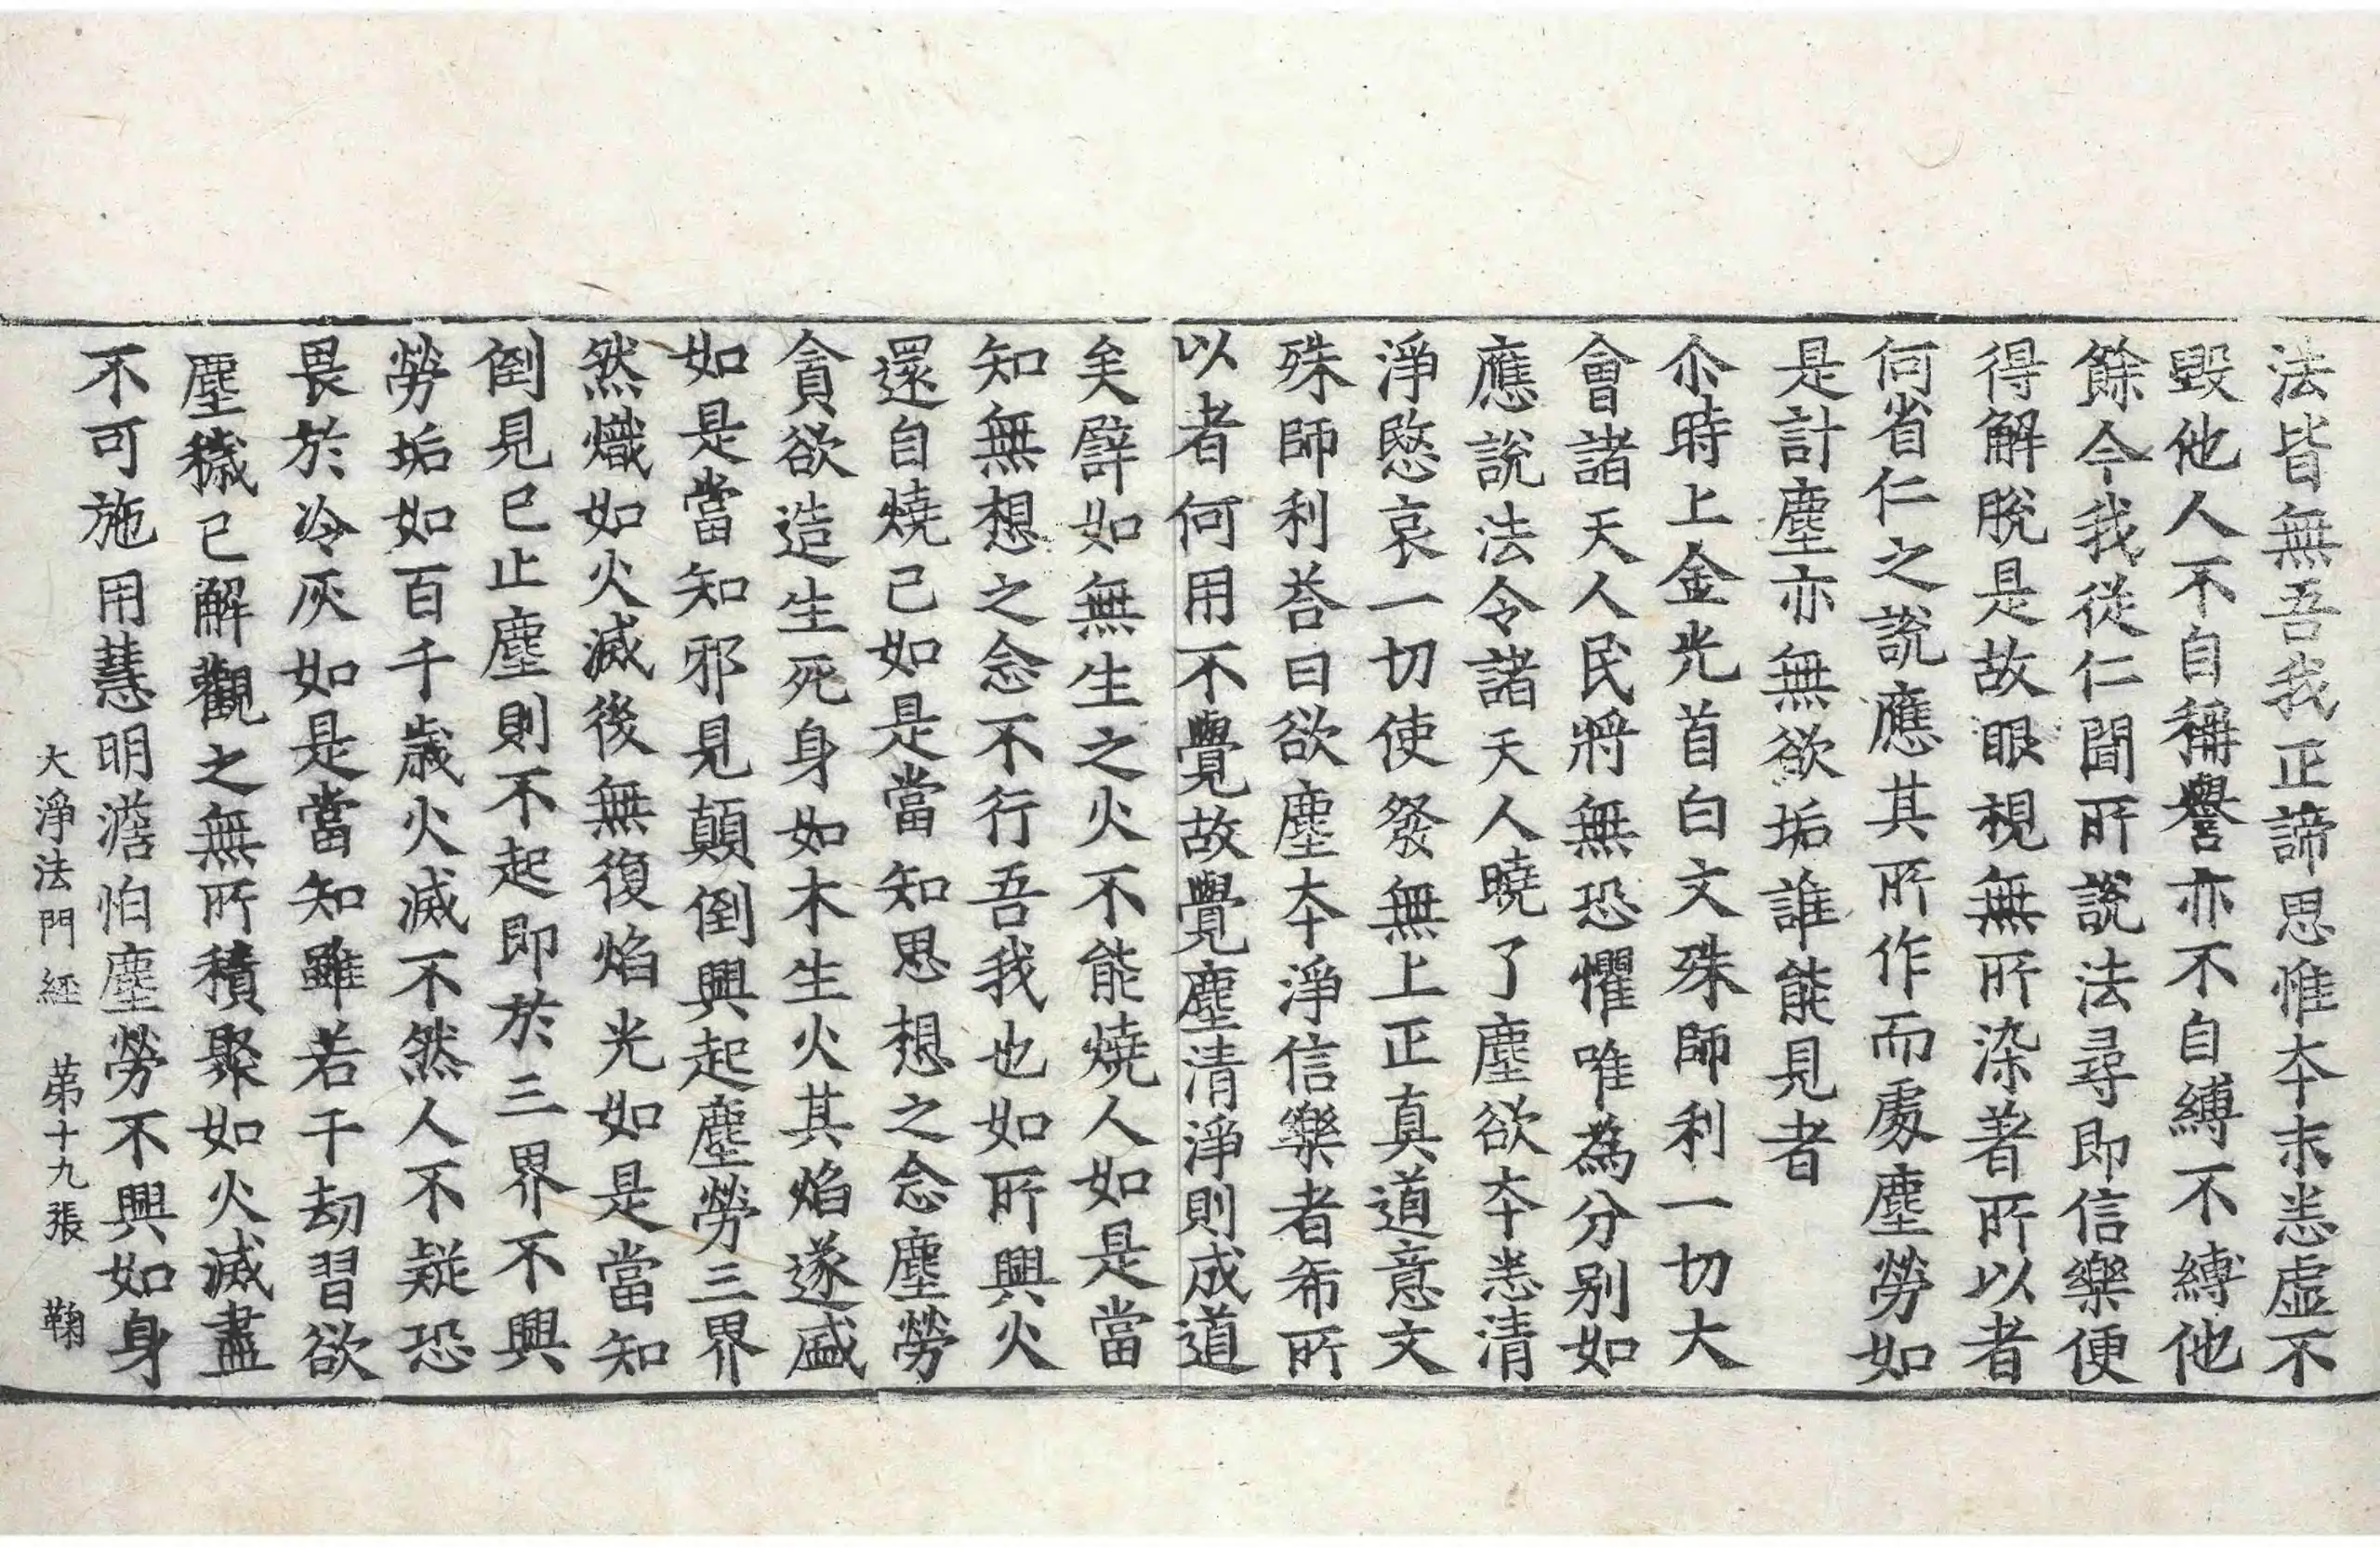 法皆無吾我正諦思惟夲末恙虛不
毀他人不自稱譽亦不自縛不縛他
餘今我從仁聞所說法尋即信樂便
得解脫是故眼視無所染著所以者
何省仁之說應其所作而處塵勞如
是計塵亦無欲垢誰能見者
尒時上金光首白文殊師利一切大
會諸天人民將無恐懼唯為分別如
應說法令諸天人曉了塵欲夲悉清
淨愍哀一切使發無上正真道意文
殊師利荅曰欲塵夲淨信樂者希所
以者何用不覺故覺塵清淨則成道
矣譬如無生之火不能燒人如是當
知無想之念不行吾我也如所興火
還自燒己如是當知思想之念塵勞
貪欲造生死身如木生火其焰遂盛
如是當知邪見顛倒興起塵勞三界
然熾如火滅後無復焰光如是當知
倒見已止塵則不起即於三界不興
勞垢如百千歲火滅不然人不疑恐
畏於冷灰如是當知雖若干劫習欲
塵穢已解觀之無所積聚如火滅盡
不可施用慧明澹怕塵勞不興如身
大淨法門經 苐十九張 鞠